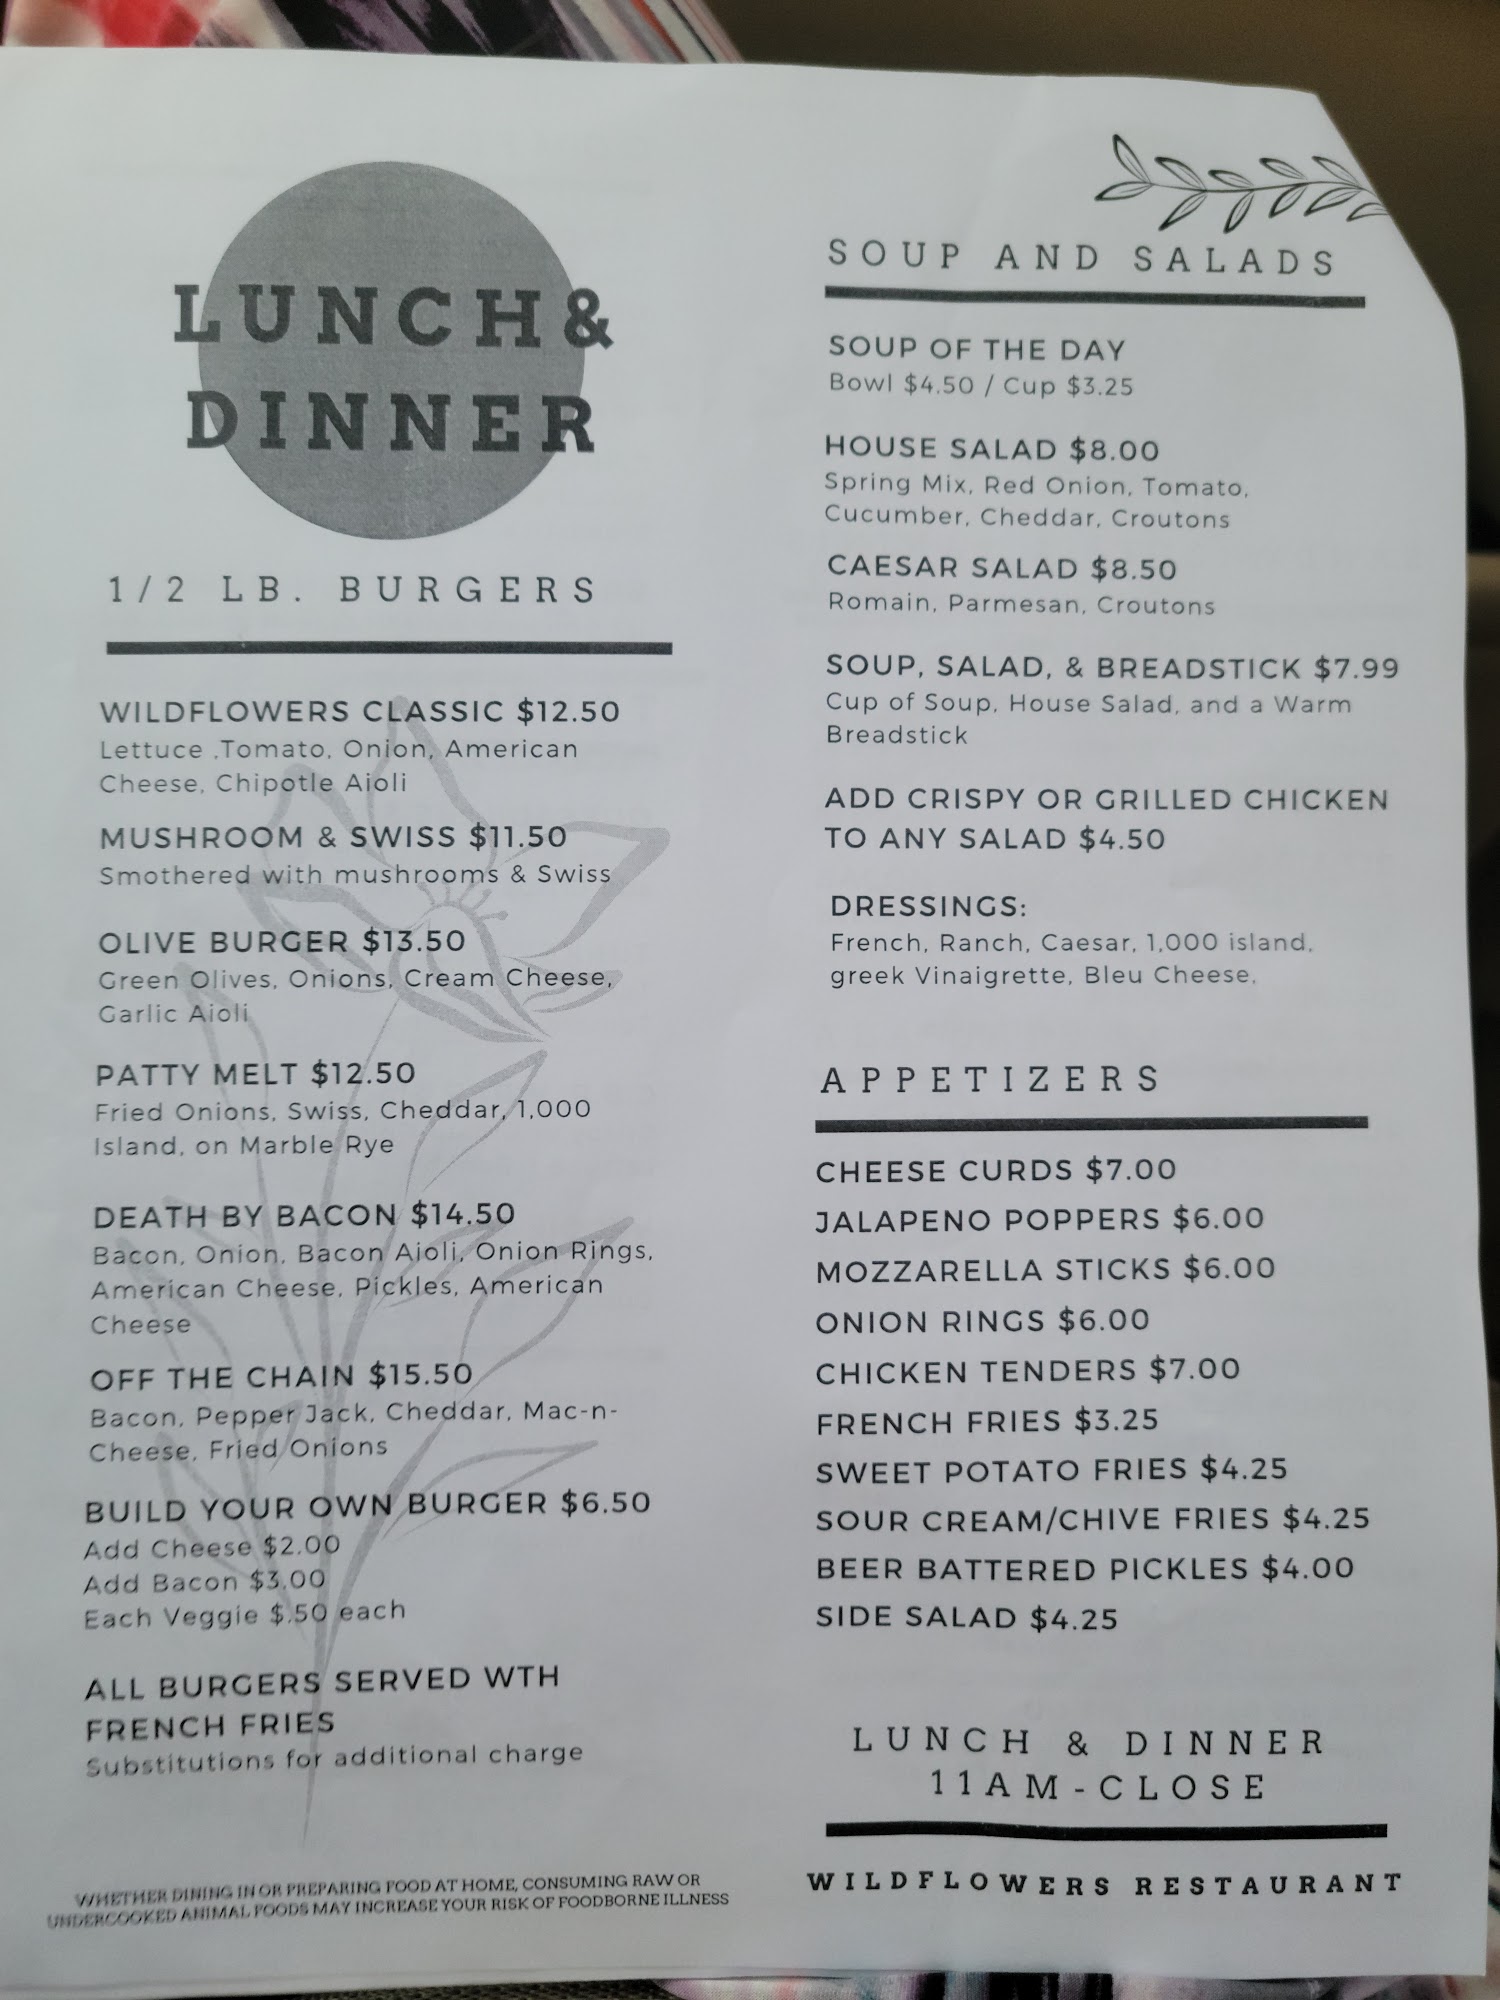 LUNCH &
DINNER
1/2 LB. BURGERS
WILDFLOWERS CLASSIC $12.50
Lettuce ,Tomato, Onion, American
Cheese, Chipotle Aioli
MUSHROOM & SWISS $11.50
Smothered with mushrooms & Swiss
OLIVE BURGER $13.50
Green Olives, Onions, Cream Cheese,
Garlic Aioli
PATTY MELT $12.50
Fried Onions, Swiss, Cheddar, 1,000
Island, on Marble Rye
DEATH BY BACON $14.50
Bacon, Onion, Bacon Aioli, Onion Rings,
American Cheese, Pickles, American
Cheese
OFF THE CHAIN $15.50
Bacon, Pepper Jack, Cheddar, Mac-n-
Cheese, Fried Onions
BUILD YOUR OWN BURGER $6.50
Add Cheese $2.00
Add Bacon $3.00
Each Veggie $.50 each
ALL BURGERS SERVED WTH
FRENCH FRIES
Substitutions for additional charge
WHETHER DINING IN OR PREPARING FOOD AT HOME, CONSUMING RAW OR
UNDERCOOKED ANIMAL FOODS MAY INCREASE YOUR RISK OF FOODBORNE ILLNESS
SOUP AND SALADS
SOUP OF THE DAY
Bowl $4.50 / Cup $3.25
HOUSE SALAD $8.00
Spring Mix, Red Onion, Tomato,
Cucumber, Cheddar, Croutons
CAESAR SALAD $8.50
Romain, Parmesan, Croutons
SOUP, SALAD, & BREADSTICK $7.99
Cup of Soup, House Salad, and a Warm
Breadstick
ADD CRISPY OR GRILLED CHICKEN
TO ANY SALAD $4.50
DRESSINGS:
French, Ranch, Caesar, 1,000 island,
greek Vinaigrette, Bleu Cheese,
APPETIZERS
CHEESE CURDS $7.00
JALAPENO POPPERS $6.00
MOZZARELLA STICKS $6.00
ONION RINGS $6.00
CHICKEN TENDERS $7.00
FRENCH FRIES $3.25
SWEET POTATO FRIES $4.25
SOUR CREAM/CHIVE FRIES $4.25
BEER BATTERED PICKLES $4.00
SIDE SALAD $4.25
LUNCH & DINNER
11AM-CLOSE
WILDFLOWERS RESTAURANT